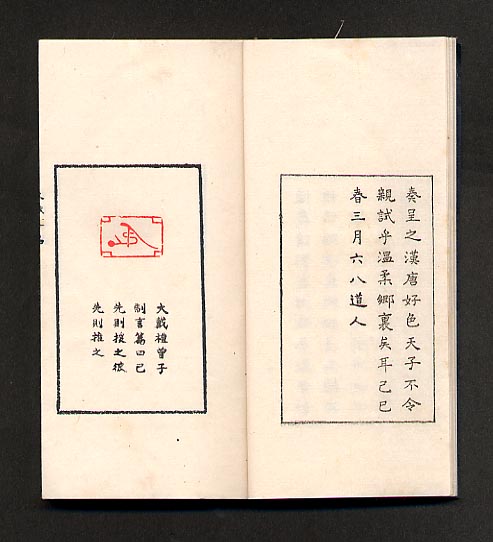 奏呈之漢唐好色天子不令
親試乎溫柔鄉裏矣耳己巳
春三月六八道人
大戴禮曾子
制言篇曰己
先則援之彼
先則推之